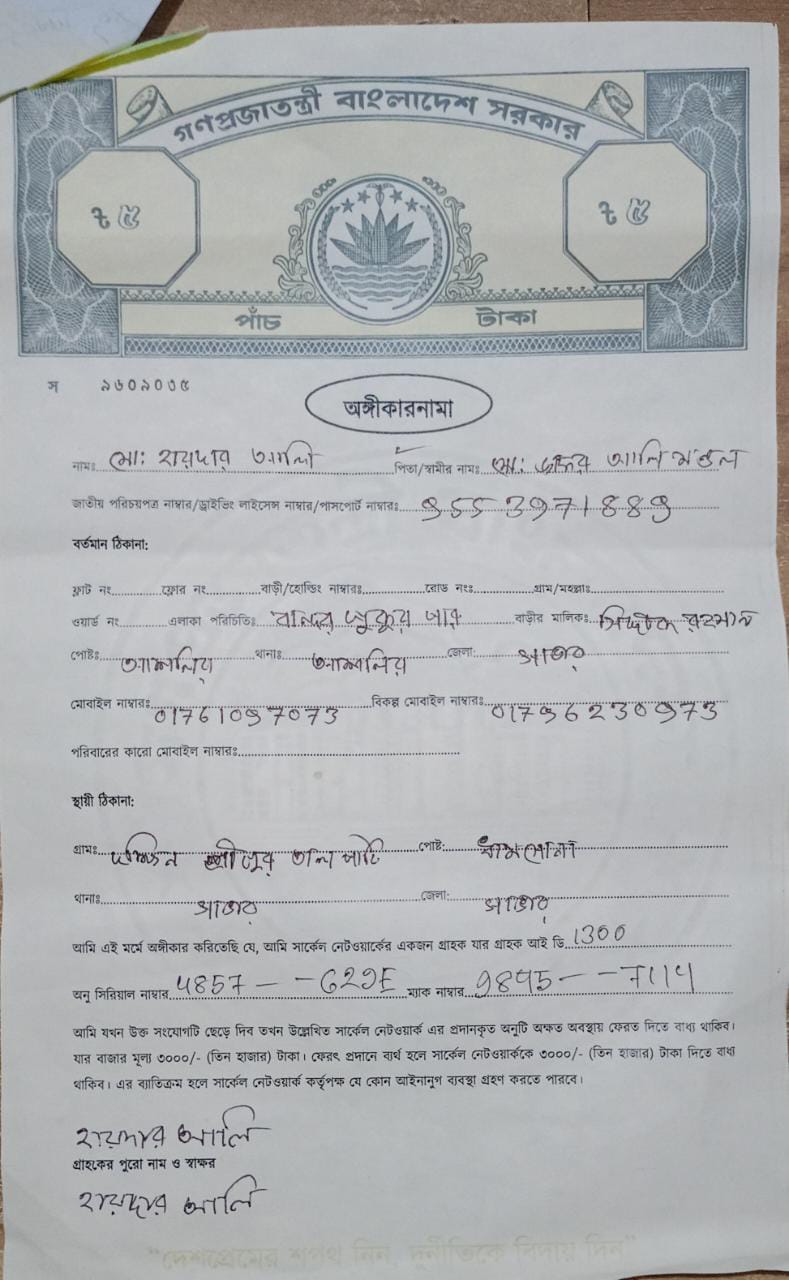 গণপ্রজাতন্ত্রী বাংলাদেশ সরকার
৳ ৫ ৳ ৫
পাঁচ টাকা
স ৯৬০৯০৩৫
অঙ্গীকারনামা
নামঃ মো: হায়দার আলী পিতা/স্বামীর নামঃ মো: আলি মন্ডল
জাতীয় পরিচয়পত্র নাম্বার/ড্রাইভিং লাইসেন্স নাম্বার/পাসপোর্ট নাম্বারঃ
বর্তমান ঠিকানা:
ফ্লাট নং ফ্লোর নং বাড়ী/হোল্ডিং নাম্বারঃ রোড নংঃ গ্রাম/মহল্লাঃ
ওয়ার্ড নং এলাকা পরিচিতিঃ পুকুর পার বাড়ীর মালিকঃ রহমান
পোষ্টঃ আশুলিয়া থানাঃ আশুলিয়া জেলা: সাভার
মোবাইল নাম্বারঃ 01761097073 বিকল্প মোবাইল নাম্বারঃ 01796230973
পরিবারের কারো মোবাইল নাম্বারঃ
স্থায়ী ঠিকানা:
গ্রামঃ পোষ্ট:
থানাঃ সাভার জেলা: সাভার
আমি এই মর্মে অঙ্গীকার করিতেছি যে, আমি সার্কেল নেটওয়ার্কের একজন গ্রাহক যার গ্রাহক আই ডি 1300
অনু সিরিয়াল নাম্বার 4857 – – 629E ম্যাক নাম্বার
আমি যখন উক্ত সংযোগটি ছেড়ে দিব তখন উল্লেখিত সার্কেল নেটওয়ার্ক এর প্রদানকৃত অনুটি অক্ষত অবস্থায় ফেরত দিতে বাধ্য থাকিব।
যার বাজার মূল্য ৩০০০/- (তিন হাজার) টাকা। ফেরৎ প্রদানে ব্যর্থ হলে সার্কেল নেটওয়ার্ককে ৩০০০/- (তিন হাজার) টাকা দিতে বাধ্য
থাকিব। এর ব্যতিক্রম হলে সার্কেল নেটওয়ার্ক কর্তৃপক্ষ যে কোন আইনানুগ ব্যবস্থা গ্রহণ করতে পারবে।
হায়দার আলি
গ্রাহকের পুরো নাম ও স্বাক্ষর
হায়দার আলি
"দেশপ্রেমের শপথ নিন, দুর্নীতিকে বিদায় দিন"